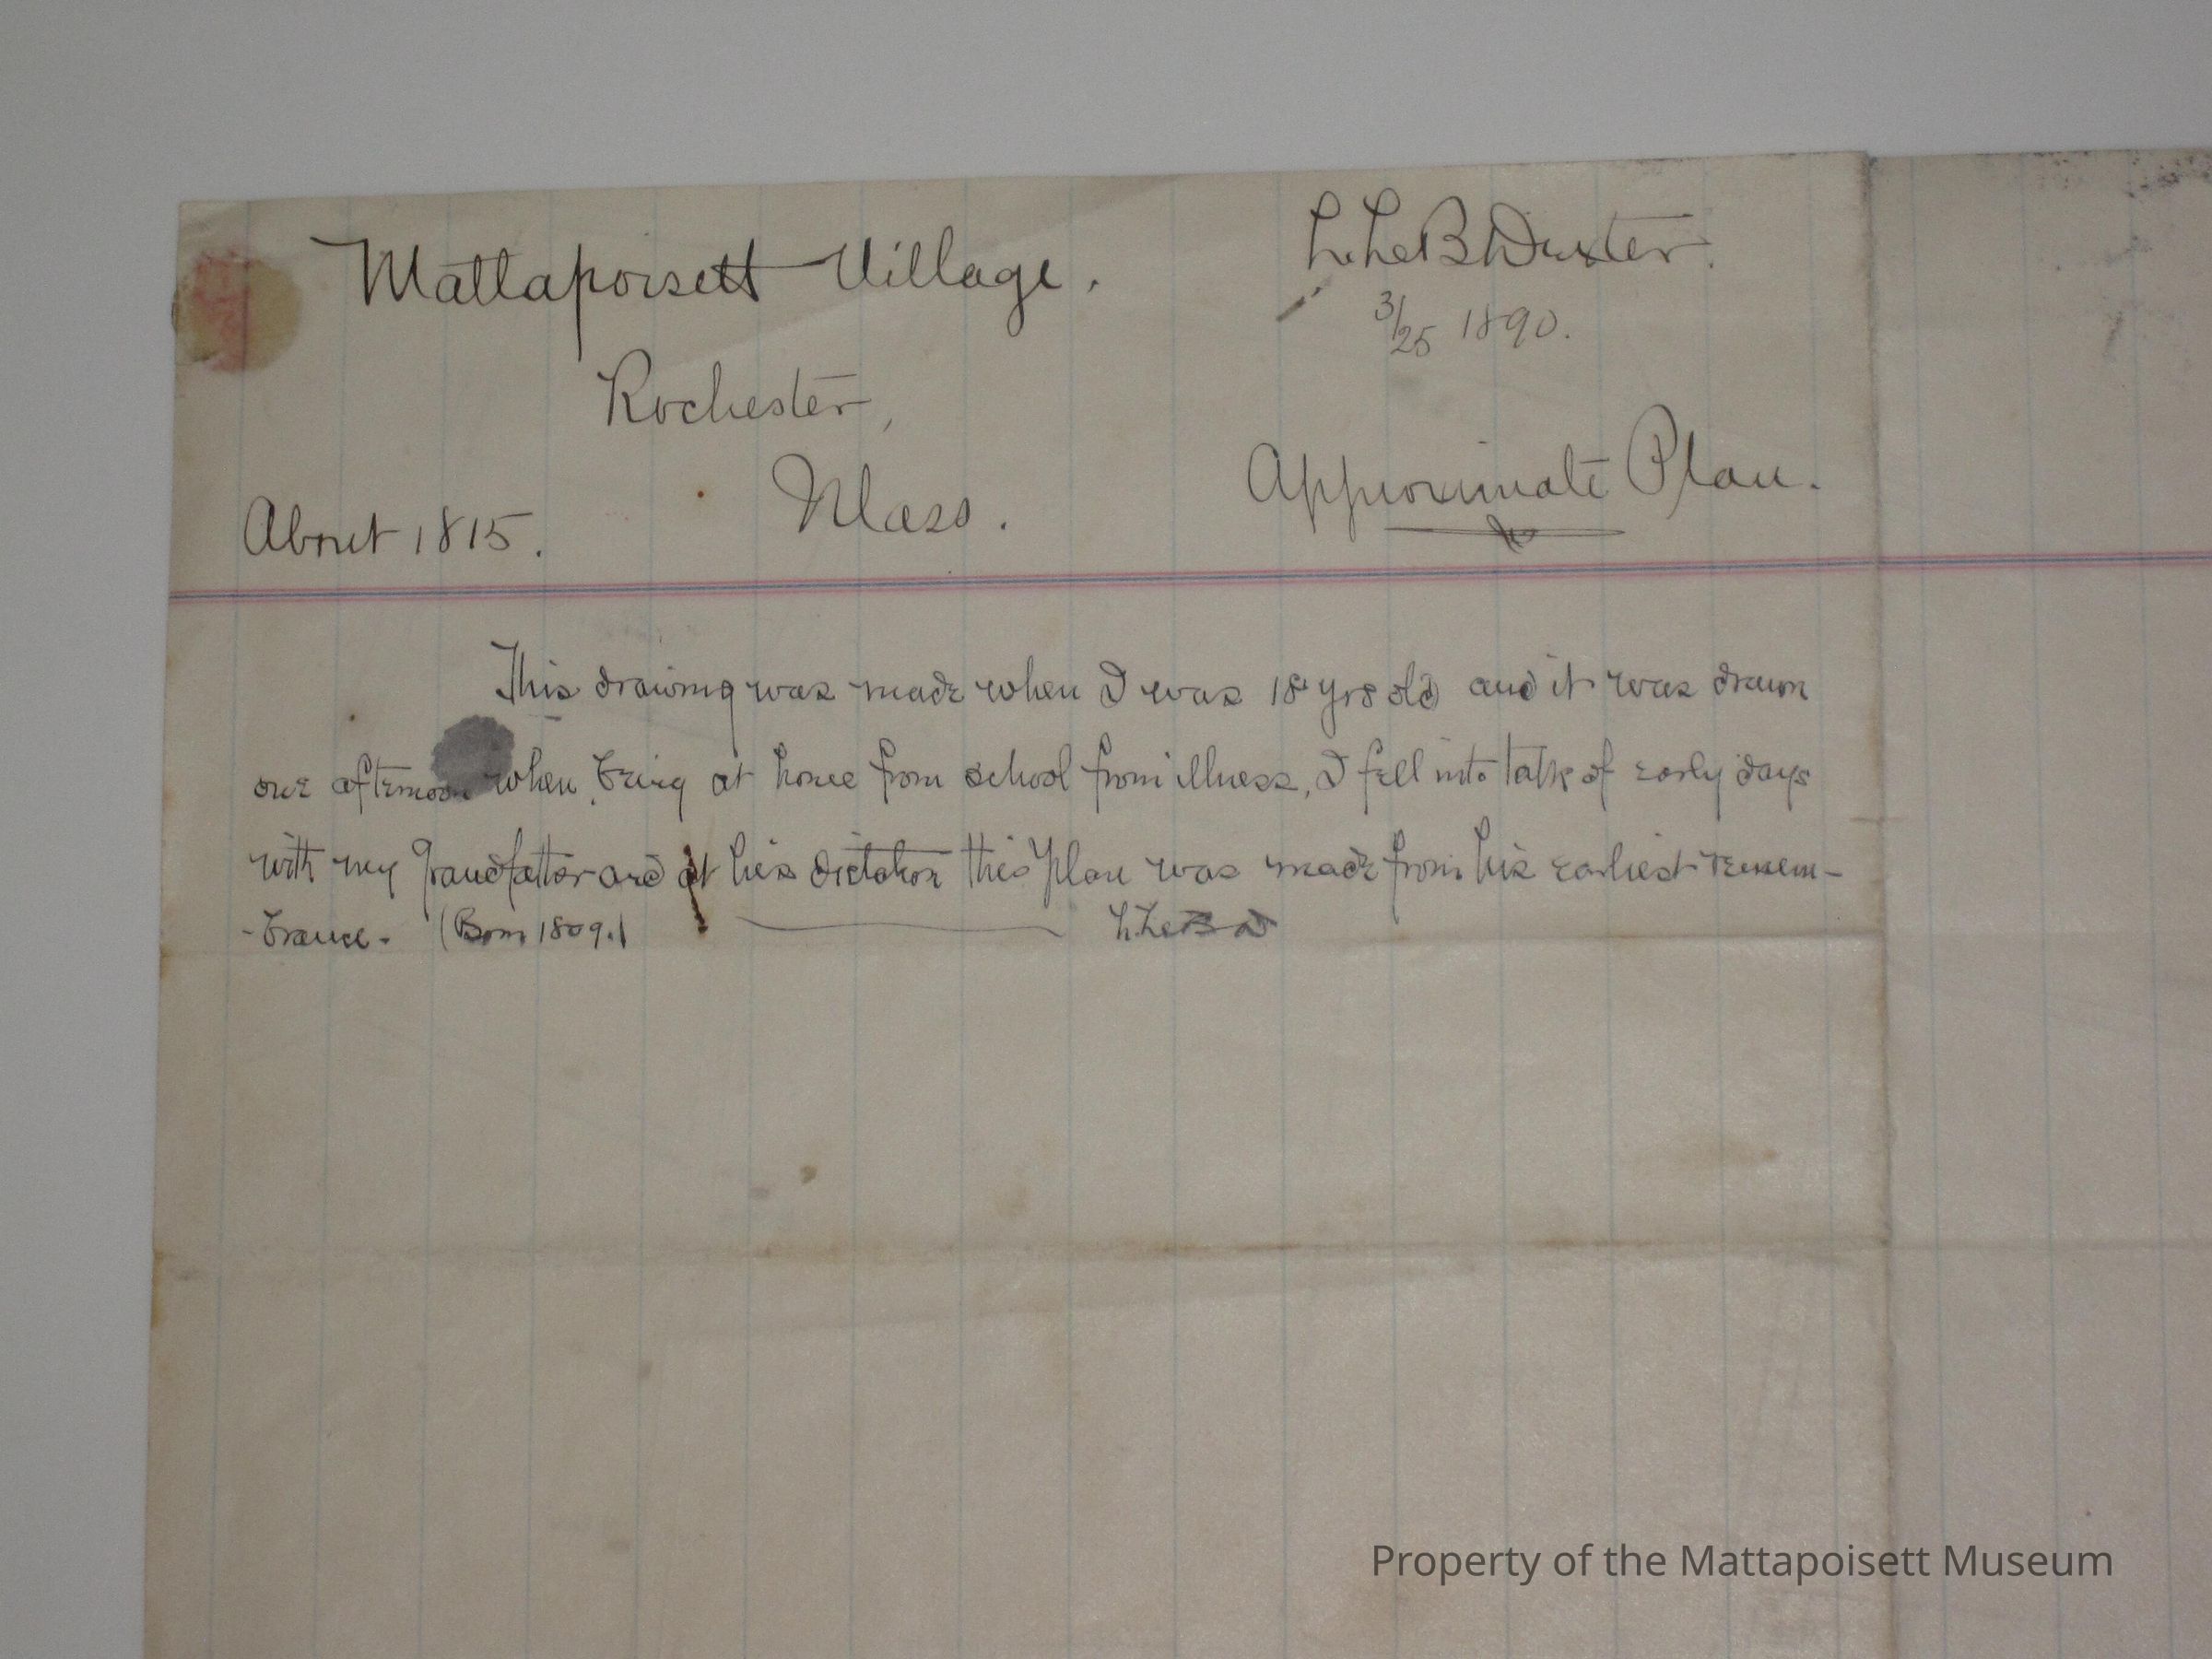 Mattapoisett Village.
L. LeB Dexter.
3/25 1890.
Rochester,
Mass.
Approximate Plan.
About 1815.
This drawing was made when I was 18 yrs old and it was drawn
one afternoon when, being at home from school from illness, I fell into talk of early days
with my grandfather and at his dictation this plan was made from his earliest remem-
-brance. (Born 1809.) L. LeB D
Property of the Mattapoisett Museum